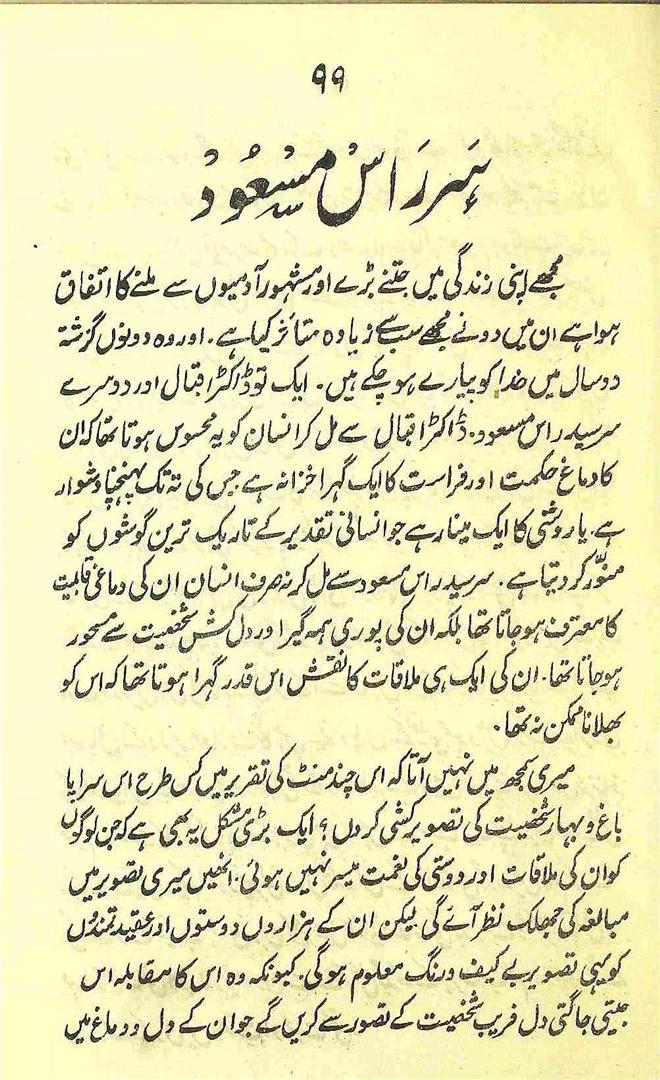 ۹۹
سَر رَاسْ مسْعُودْ
مجھے اپنی زندگی میں جتنے بڑے اور مشہور آدمیوں سے ملنے کا اتفاق
ہوا ہے ان میں دو نے مجھے سب سے زیادہ متاثر کیا ہے۔ اور وہ دونوں گزشتہ
دو سال میں خدا کو پیارے ہو چکے ہیں۔ ایک تو ڈاکٹر اقبال اور دوسرے
سر سیدراس مسعود۔ ڈاکٹر اقبال سے مل کر انسان کو یہ محسوس ہوتا تھا کہ ان
کا دماغ حکمت اور فراست کا ایک گہرا خزانہ ہے جس کی تہ تک پہنچنا دشوار
ہے۔ یا روشنی کا ایک مینار ہے جو انسانی تقدیر کے تاریک ترین گوشوں کو
منوّر کر دیتا ہے۔ سر سیدراس مسعود سے مل کر نہ صرف انسان ان کی دماغی قابلیت
کا معترف ہو جاتا تھا بلکہ ان کی پوری ہمہ گیر اور دل کش شخصیت سے مسحور
ہو جاتا تھا۔ ان کی ایک ہی ملاقات کا نقش اس قدر گہرا ہوتا تھا کہ اس کو
بھلانا ممکن نہ تھا۔
میری سمجھ میں نہیں آتا کہ اس چند منٹ کی تقریر میں کس طرح اس سراپا
باغ و بہار شخصیت کی تصویر کشی کر دوں؟ ایک بڑی مشکل یہ بھی ہے کہ جن لوگوں
کو ان کی ملاقات اور دوستی کی نعمت میسر نہیں ہوئی۔ انھیں میری تصویر میں
مبالغہ کی جھلک نظر آئے گی لیکن ان کے ہزاروں دوستوں اور عقیدتمندوں
کو یہی تصویر بے کیف و رنگ معلوم ہو گی۔ کیونکہ وہ اس کا مقابلہ اس
جیتی جاگتی دل فریب شخصیت کے تصور سے کریں گے جو ان کے دل و دماغ میں